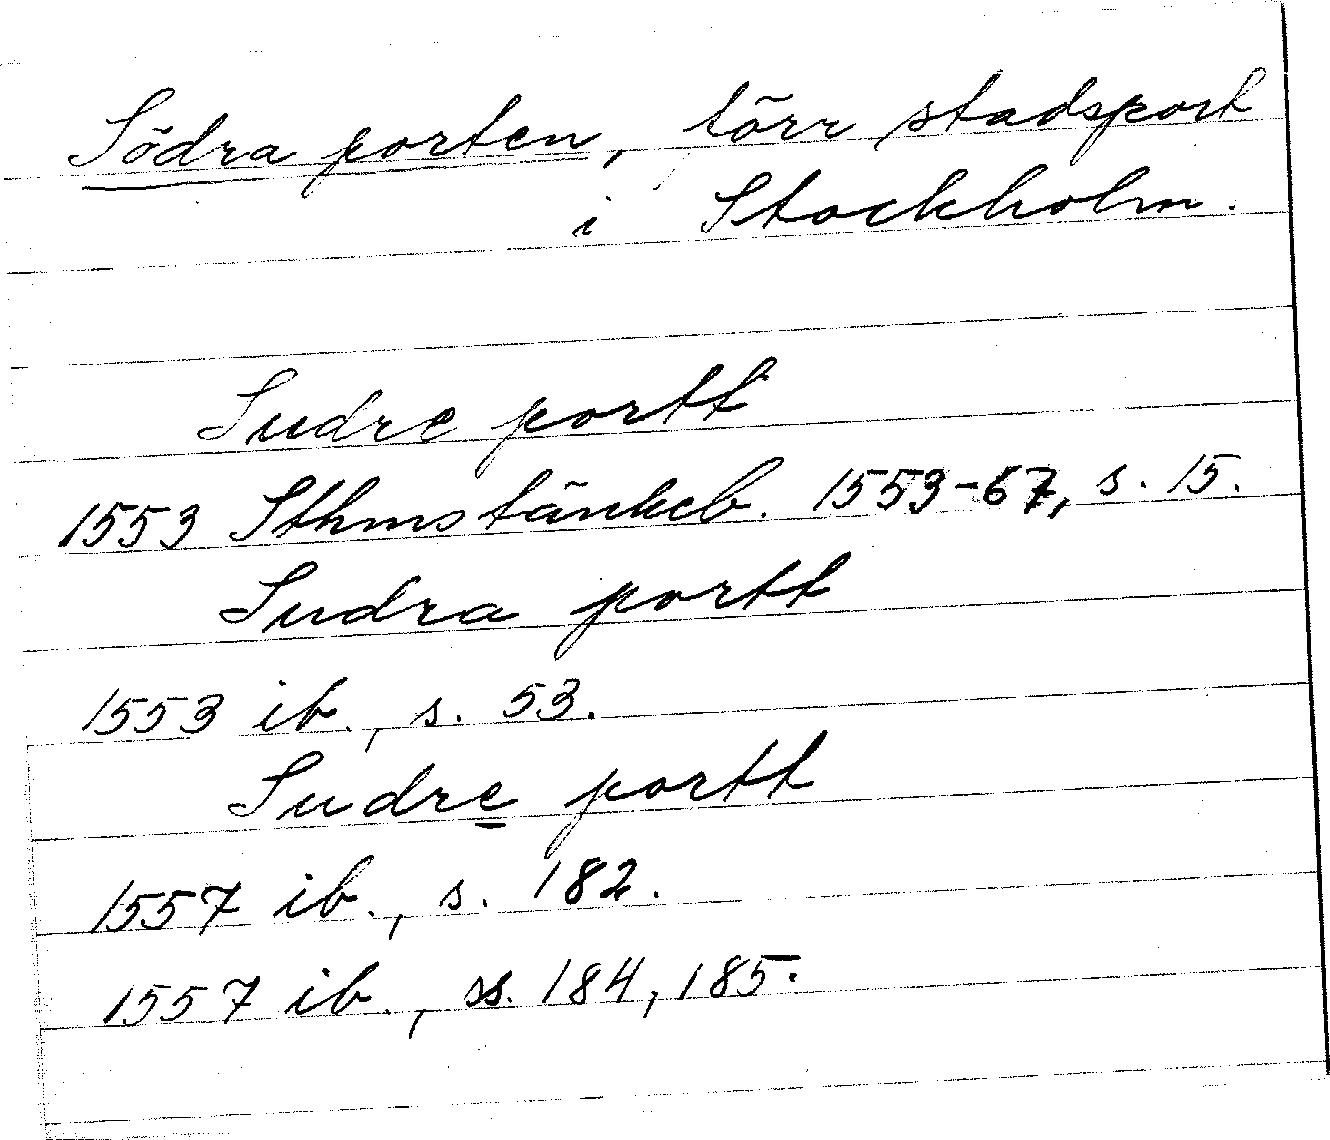 Södra porten, förr stadsport
i Stockholm.
Sudre portt
1553 Sthmstänkeb. 1553-67, s. 15.
Sudra portt
1553 ib., s. 53.
Sudre portt
1557 ib., s. 182.
1557 ib., ss. 184, 185.